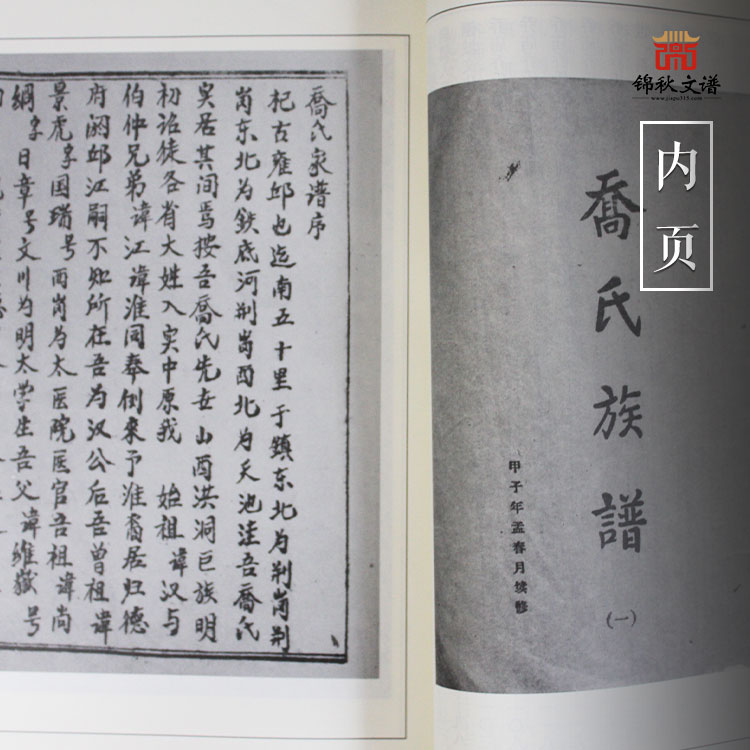 锦秋文谱
www.jiapu315.com
内页
喬氏族譜
(一)
甲子年孟春月续修
喬氏家谱序
杞古雍邱也迄南五十里于鎮东北为荆岗荆
岗东北为鉄底河荆岗酉北为天池洼吾喬氏
吴居其间焉按吾喬氏先世山酉洪洞巨族明
初诏徒各省大姓入实中原我 始祖諱汉与
伯仲兄弟諱江諱淮同奉倒来予淮裔居归德
府阙邱江嗣不知所在吾为汉公后吾曾祖諱
景虎字国瑞号西岗为太医院医官吾祖諱尚
綱字日章号文川为明太学生吾父諱維嶽号